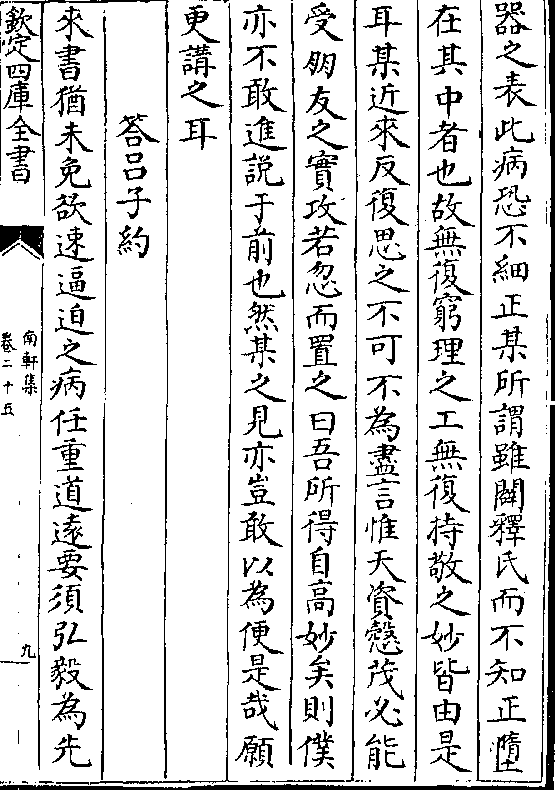 器之表此病恐不細正某所謂雖闢釋氏而不知正墮
在其中者也故無復窮理之工無復持敬之妙皆由是
耳某近來反復思之不可不為盡言惟天資慤茂必能
受朋友之實攻若忽而置之曰吾所得自高妙矣則僕
亦不敢進説于前也然某之見亦豈敢以為便是哉願
更講之耳
答吕子約
來書猶未免欲速逼迫之病任重道逺要須弘毅為先
欽定四庫全書
南軒集
卷二十五
九